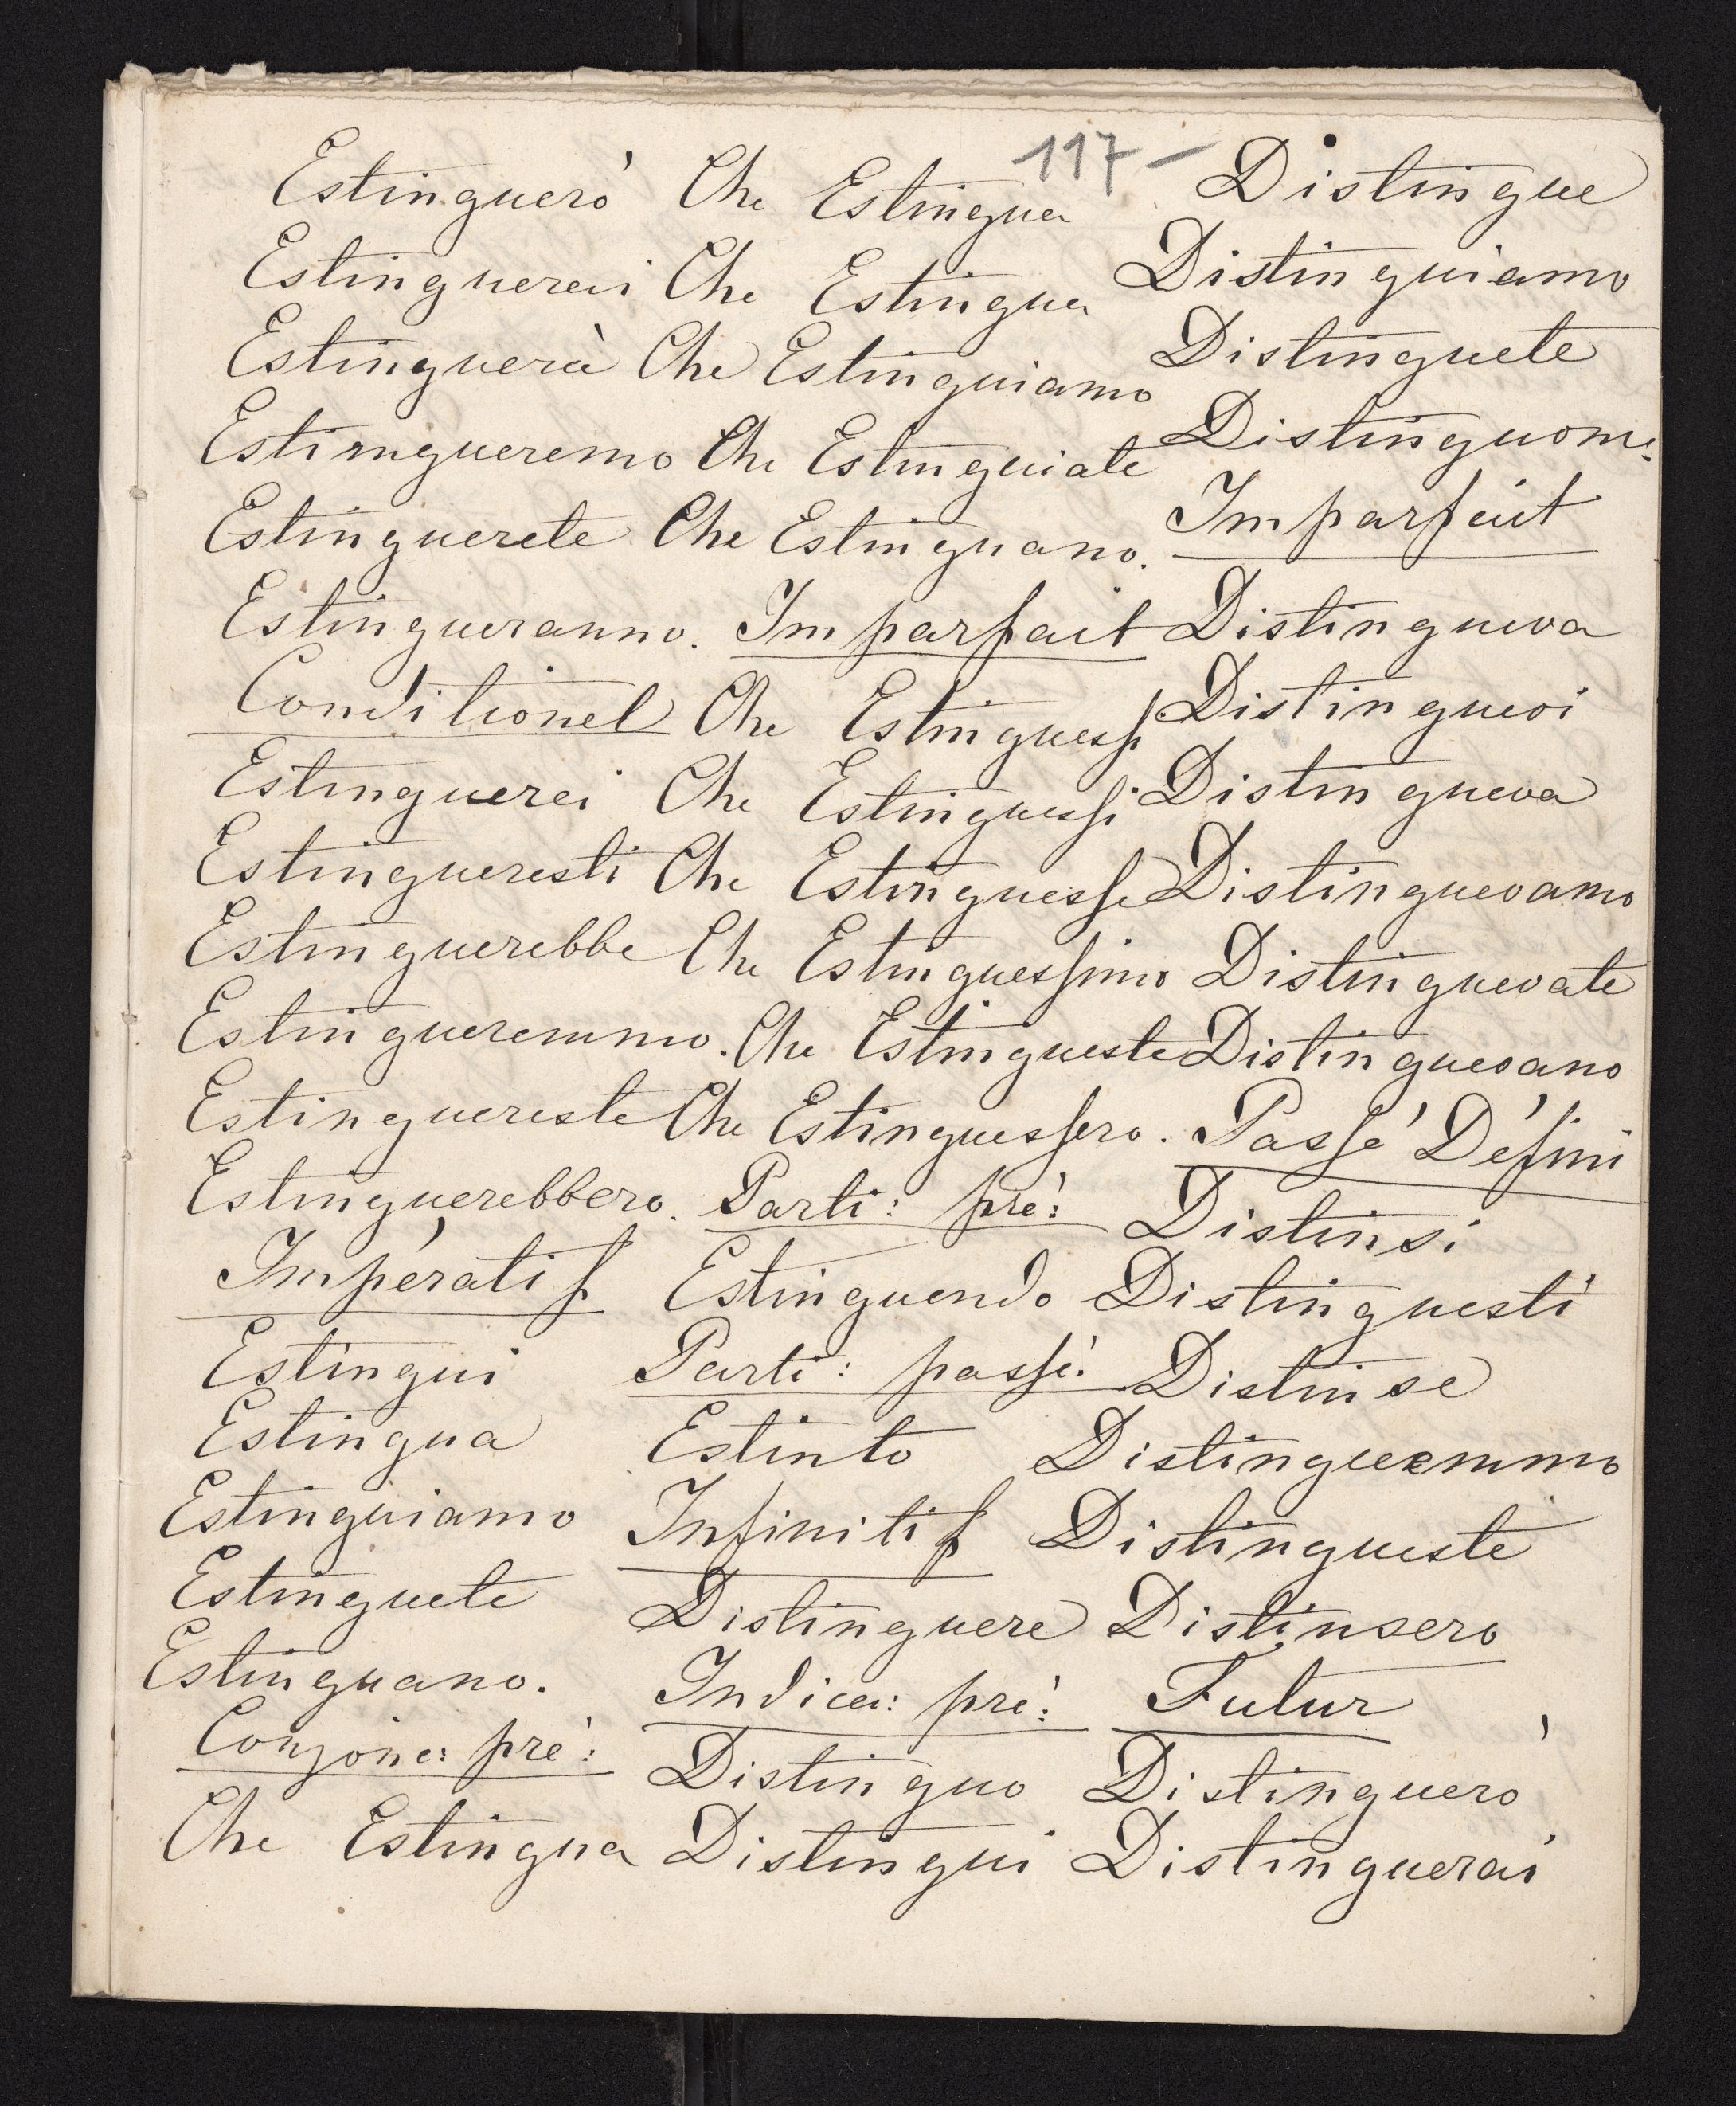 117-
Estinguerò
Estinguerai
Estinguerà
Estimgueremo
Estinguerete
Estingueranno.
Conditionel
Estinguerei
Estingueresti
Estinguerebbe
Estingueremmo.
Estinguereste
Estinguerebbero.
Impératif
Estingui
Estingua
Estinguiamo
Estinguete
Estinguano.
Conjonc: pré:
Che Estingua
Che Estingua
Che Estingua
Che Estinguiamo
Che Estinguiate
Che Estinguano.
Imparfait
Che Estinguessi
Che Estinguessi
Che Estinguesse
Che Estinguessimo
Che Estingueste
Che Estinguessero.
Parti: pré:
Estinguendo
Parti: passé:
Estinto
Infinitif
Distinguere
Indica: pré:
Distinguo
Distingui
Distingue
Distinguiamo
Distinguete
Distinguono.
Imparfait
Distingueva
Distinguevi
Distingueva
Distinguevamo
Distinguevate
Distinguevano
Passé Défini
Distinsi
Distinguesti
Distinse
Distinguemmo
Distingueste
Distinsero
Futur
Distinguerò
Distinguerai